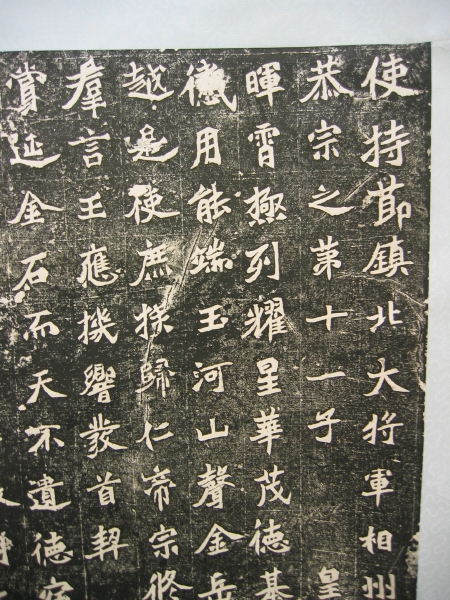 使持節鎮北大將軍相州
恭宗之第十一子 皇
暉霄極列耀星華茂德基
儀用能端玉河山聲金岳
越是使庶族歸仁帝宗攸
羣言王應機響發首契
賞延金石而天不遺德宿